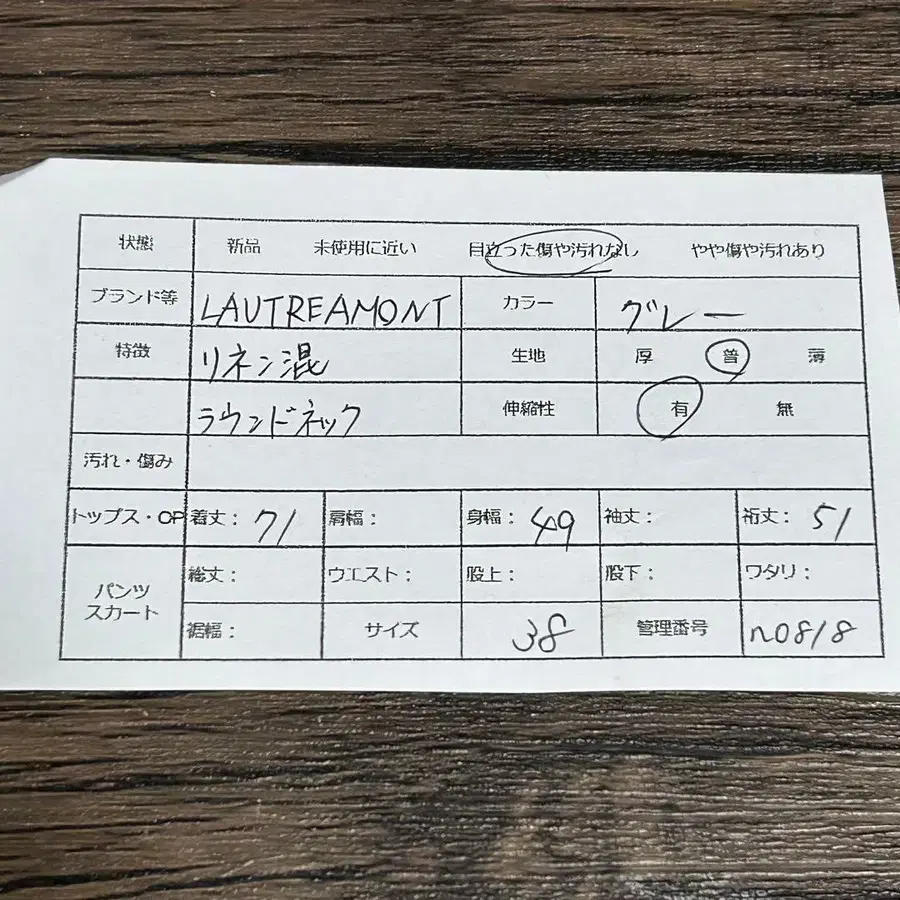 状態 新品 未使用に近い 目立った傷や汚れなし やや傷や汚れあり
ブランド等 LAUTREAMONT カラー グレー
特徴 リネン混 生地 厚 普 薄
ラウンドネック 伸縮性 有 無
汚れ・傷み
トップス・OP 着丈: 71 肩幅: 身幅: 49 袖丈: 裄丈: 51
パンツ スカート 総丈: ウエスト: 股上: 股下: ワタリ:
裾幅: サイズ 38 管理番号 n0818